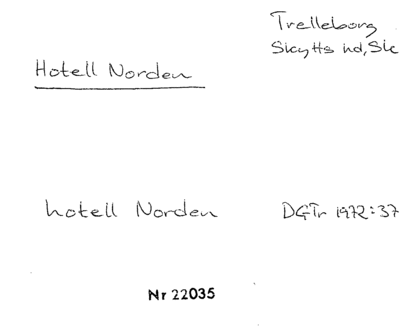 Trelleborg
Skytts hd, Sk
Hotell Norden
hotell Norden DGTr 1972:37
Nr 22035